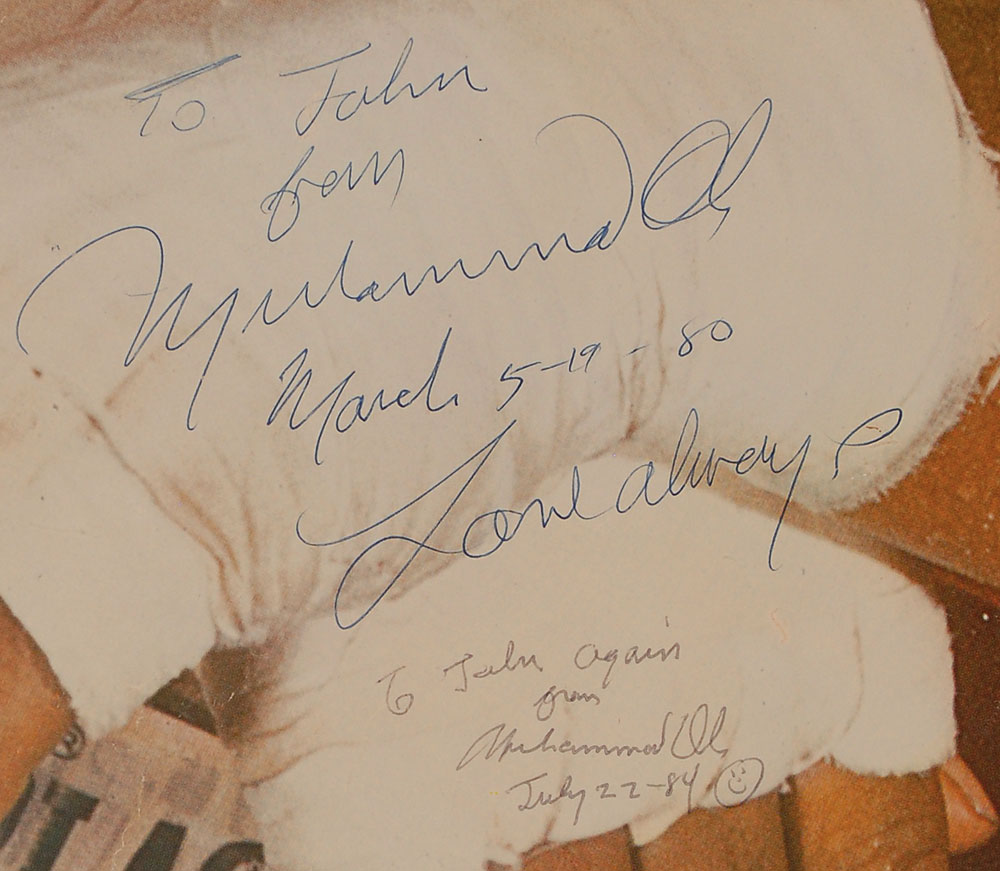 To John
from
Muhammad Ali
March 5-19-80
Love always
To John again
from
Muhammad Ali
July 22-84
®